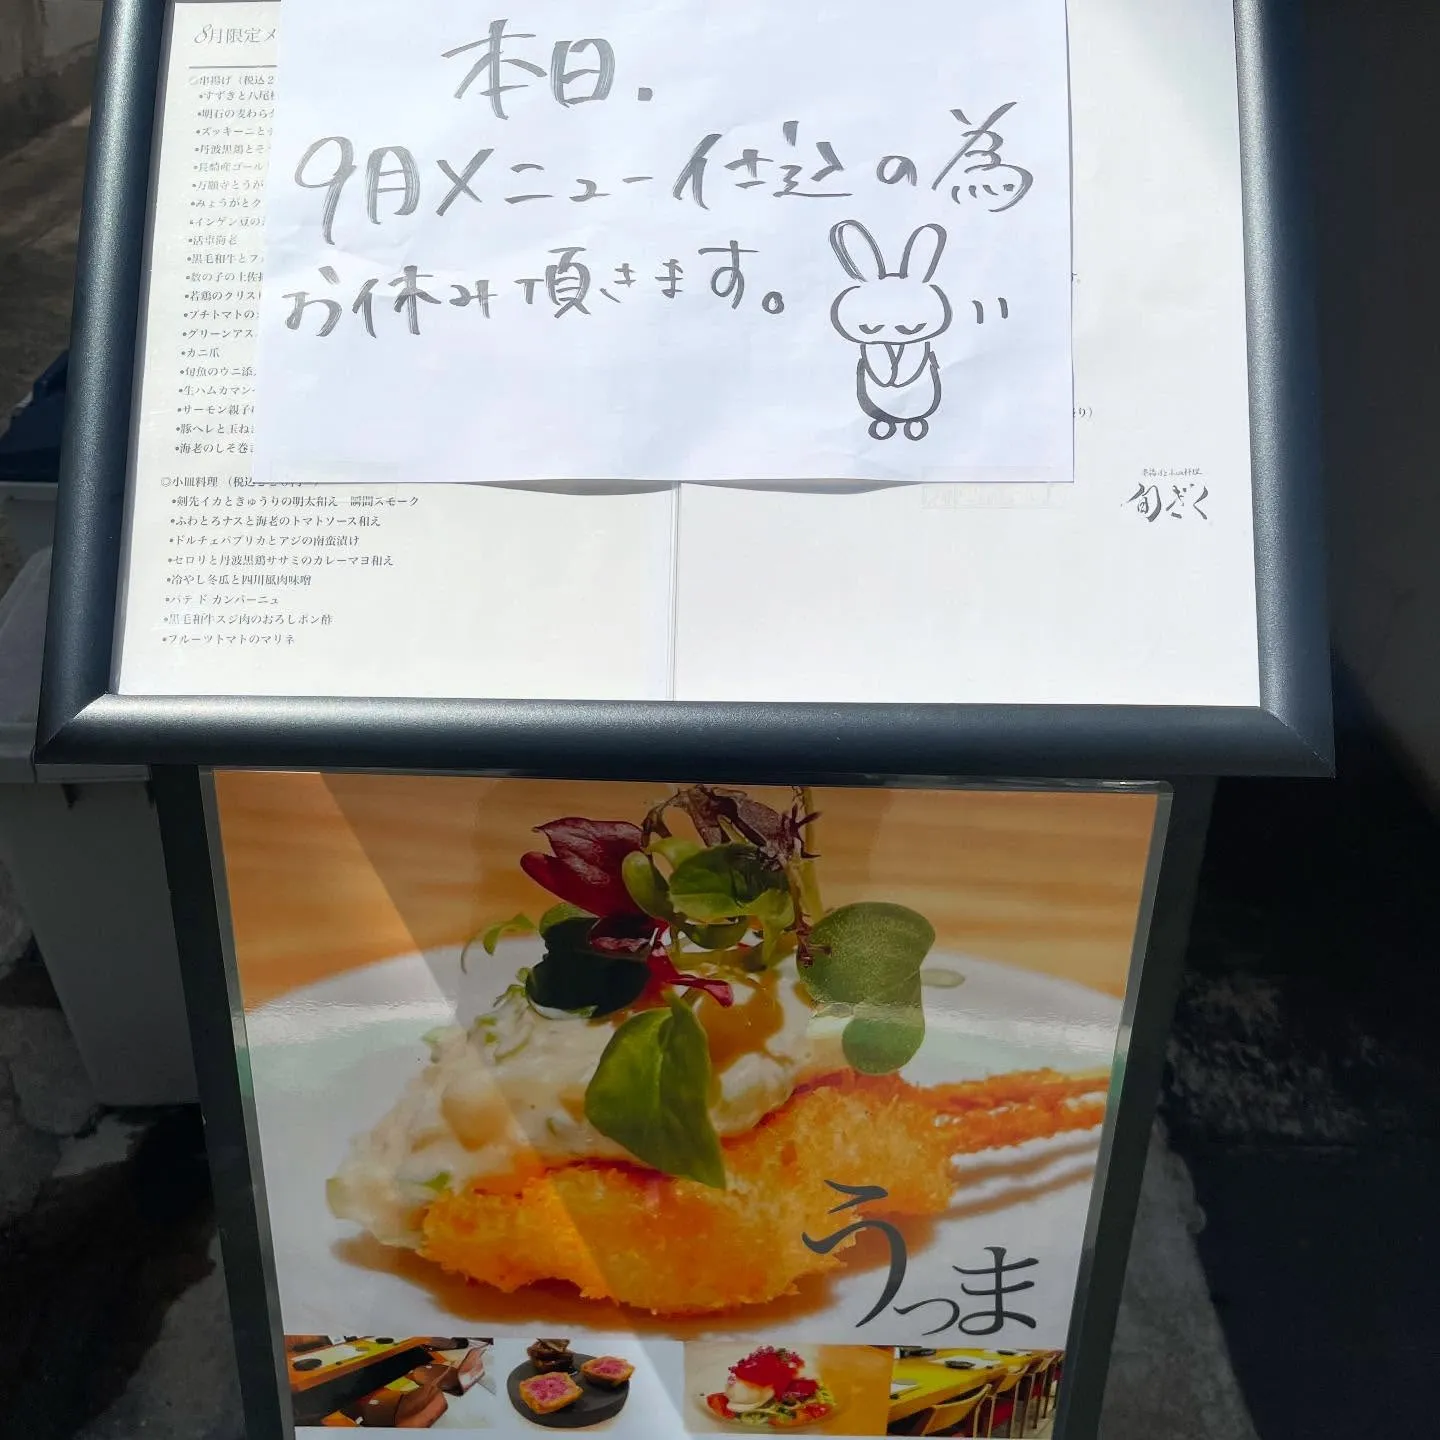 本日.
9月メニュー仕込の為
お休み頂きます。
8月限定メ
◎串揚げ（税込2
•すずきと八尾
•明石の麦わら
•ズッキーニと
•丹波黒鶏とそ
•長崎産ゴール
•万願寺とうが
•みょうがとク
•インゲン豆の
•活車海老
•黒毛和牛とフ
•数の子の土佐
•若鶏のクリス
•プチトマトの
•グリーンアス
•カニ爪
•旬魚のウニ添
•生ハムカマン
•サーモン親子
•豚ヘレと玉ね
•海老のしそ巻
◎小皿料理（税込
•剣先イカときゅうりの明太和え 瞬間スモーク
•ふわとろナスと海老のトマトソース和え
•ドルチェパプリカとアジの南蛮漬け
•セロリと丹波黒鶏ササミのカレーマヨ和え
•冷やし冬瓜と四川風肉味噌
•パテ ド カンパーニュ
•黒毛和牛スジ肉のおろしポン酢
•フルーツトマトのマリネ
り）
串揚げと小皿料理
旬ざく
うっま